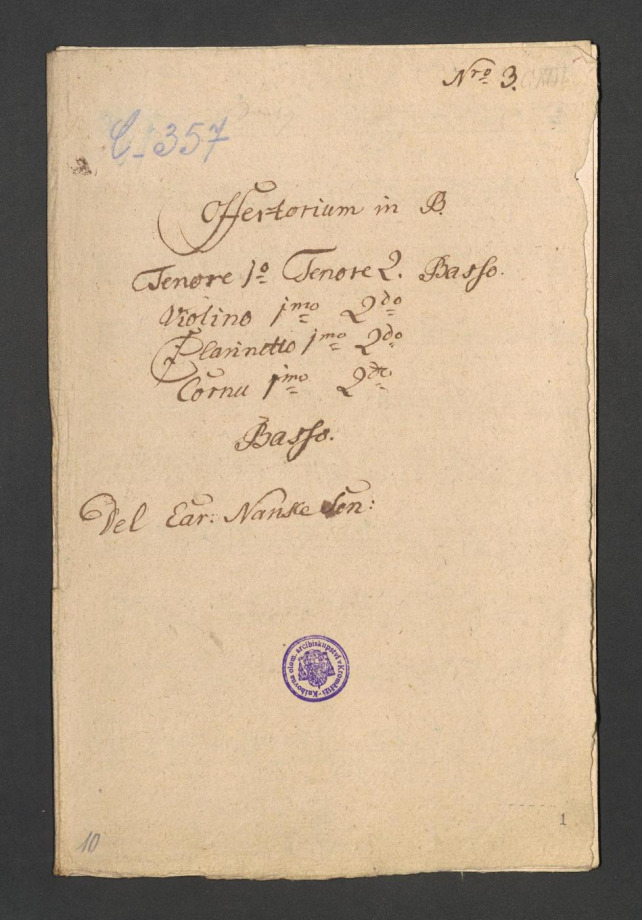 Nro 3.
C 357
Offertorium in B.
Tenore 1o Tenore 2. Basso.
Violino 1mo 2do
Clarinetto 1mo 2do
Cornu 1mo 2do
Basso.
Del Car: Nanke Sen:
Knihovna olom. arcibiskupství v Kroměříži
10
1